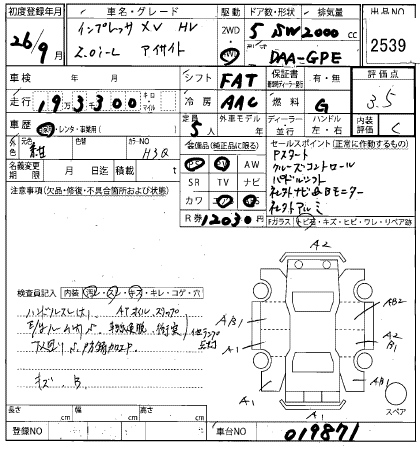 初度登録年月 車名・グレード 駆動 ドア数・形状 排気量 出品NO
26/9月 インプレッサ XV HV 2WD 5 SW 2000 cc 2539
2.0i-L アイサイト DAA-GPE
車検 年 月 シフト FAT 保証書 有・無 評価点
走行 193300 キロ マイル 冷房 AAC 燃料 G 3.5
車歴 ・レンタ・事業用( ) 定員 5人 外車モデル 年式 ディーラー 並行 ハンドル 左・右 内装評価 C
外色 元色 紺 色替 カラーNO H3Q 装備品(純正品に限る) セールスポイント(正常に作動するもの)
名義変更期限 月 日迄 積載 t PS PW AW Pスタート
注意事項(欠品・修復・不具合箇所および状態) SR TV ナビ クルーズコントロール
カワ パドルシフト
R券 12030円 セレクトナビ&Bモニター
セレクトアルミ
Fガラス (トビ石・キズ・ヒビ・ワレ・リペア跡
A2
検査員記入 内装 (汚れ・スレ・キズ・キレ・コゲ・穴
ハンドルスレ
A/B1 AB2
A2
B1
A1
キズ、B
A1 AB1
A1 スペア
長さ cm 幅 cm 高さ cm
登録NO 車台NO 019871